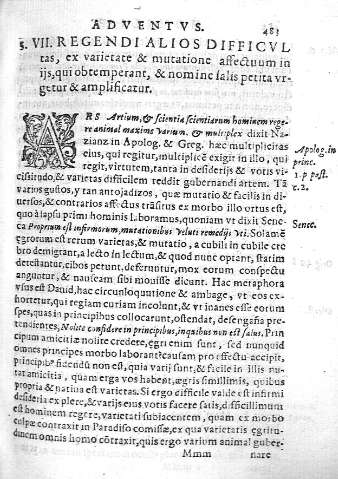 ADVENTVS.
481
§. VII. REGENDI ALIOS DIFFICVL
tas, ex varietate & mutatione affectuum in
ijs, qui obtemperant, & nomine salis petita vr-
getur & amplificatur.
ARS Artium, & scientia scientiarum hominem rege
re animal maxime varium, & multiplex dixit Na-
zianz in Apolog. & Greg. hæc multiplicitas
eius, qui regitur, multiplicẽ exigit in illo, qui
regit, virtutem, tanta in desiderijs & votis vi-
cissitudo, & varietas difficilem reddit gubernandi artem. Tã
varios gustos, y tan antojadizos, quæ mutatio & facilis in di-
uersos, & contrarios affectus trãsitus ex morbo illo ortus est,
quo à lapsu primi hominis laboramus, quoniam vt dixit Sene-
ca Proprium est infirmorum, mutationibus veluti remedijs vti. Solamẽ
ęgrorum est rerum varietas, & mutatio, a cubili in cubile cre
bro demigrant, a lecto in lectum, & quod nunc optant, statim
detestantur, cibos petunt, deferuntur, mox eorum conspectu
anguntur, & nauseam sibi mouisse dicunt. Hac metaphora
vsus est Dauid, hac circunloquutione & ambage, vt eos ex-
hortetur, qui regiam curiam incolunt, & vt inanes esse eorum
spes, quas in principibus collocarunt, ostendat, desengaña pre-
tendientes, Nolite confidere in principibus, in quibus non est salus. Prin
cipum amicitiæ nolite credere, ęgri enim sunt, sed nunquid
omnes principes morbo laborant? causam pro effectu accipit,
principibus fidendũ non est, quia varij sunt, & facile in illis nu-
tat amicitia, quam erga vos habent, ægris simillimi, quibus
propria & natiua est varietas. Si ergo difficile valde est infirmi
desideria explere, & varijs eius votis facere satis, difficillimum
est hominem regere, varietati subiacentem, quam ex morbo
culpæ contraxit in Paradiso comissæ, ex qua varietatis ęgritu-
dinem omnis homo cõtraxit, quis ergo varium animal guber-
Mmm
nare
Apolog. in
princ.
1. p past.
c. 2.
Senec.